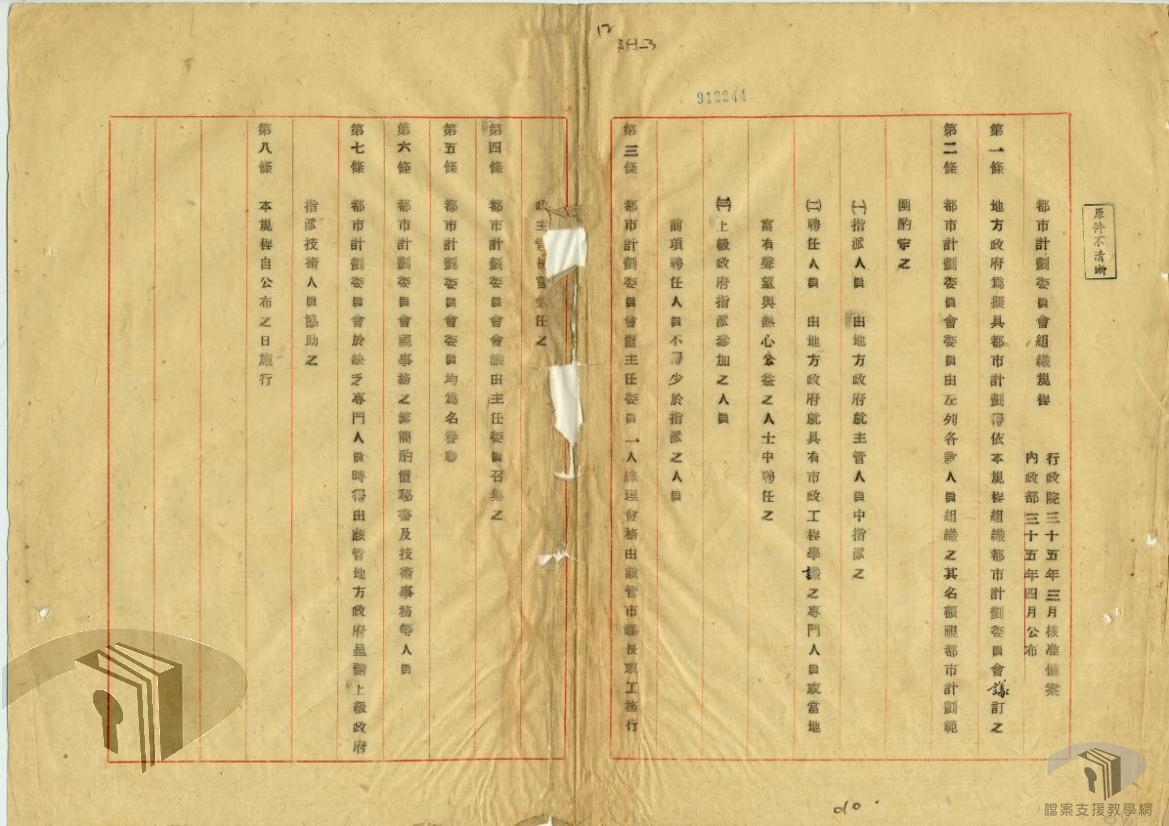 12
3H-3
912244
原件不清晰
都市計劃委員會組織規程
行政院三十五年三月核准備案
內政部三十五年四月公布
第一條 地方政府為擬具都市計劃得依本規程組織都市計劃委員會議訂之
第二條 都市計劃委員會委員由左列各款人員組織之其名額視都市計劃範
圍酌定之
㈠指派人員 由地方政府就主管人員中指派之
㈡聘任人員 由地方政府就具有市政工程學識之專門人員或當地
富有聲望與熱心公益之人士中聘任之
㈢上級政府指派參加之人員
前項聘任人員不得少於指派之人員
第三條 都市計劃委員會置主任委員一人綜理會務由該管市縣長或工務行
政主管長官兼任之
第四條 都市計劃委員會會議由主任委員召集之
第五條 都市計劃委員會委員均為名譽職
第六條 都市計劃委員會視事務之繁簡酌置秘書及技術事務等人員
第七條 都市計劃委員會於缺乏專門人員時得由該管地方政府呈請上級政府
指派技術人員協助之
第八條 本規程自公布之日施行
檔案支援教學網